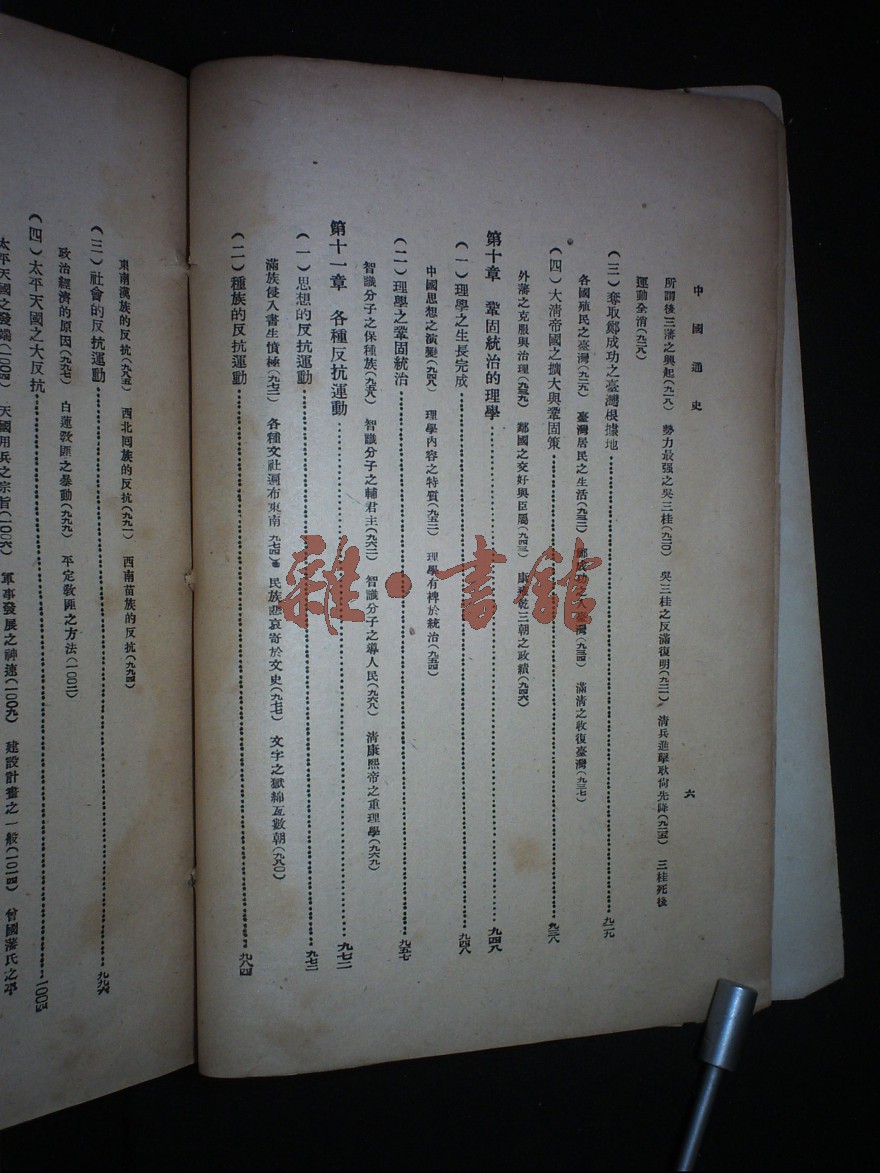 中國通史
六
所謂後三藩之興起(九一八) 勢力最强之吳三桂(九二〇) 吳三桂之反滿復明(九二一) 清兵進擊耿尙先降(九二五) 三桂死後
運動全消(九二八)
(三)奪取鄭成功之臺灣根據地 九二九
各國殖民之臺灣(九二九) 臺灣居民之生活(九三二) 鄭成功之入臺灣(九三四) 滿清之收復臺灣(九三七)
(四)大清帝國之擴大與鞏固策 九三八
外藩之克服與治理(九三九) 鄰國之交好與臣屬(九四三) 康雍乾三朝之政績(九四六)
第十章 鞏固統治的理學 九四八
(一)理學之生長完成 九四八
中國思想之演變(九四八) 理學內容之特質(九五二) 理學有裨於統治(九五四)
(二)理學之鞏固統治 九五七
智識分子之保種族(九五八) 智識分子之輔君主(九六二) 智識分子之導人民(九六八) 清康熙帝之重理學(九六九)
第十一章 各種反抗運動 九七二
(一)思想的反抗運動 九七二
滿族侵入書生憤極(九七二) 各種文社遍布東南(九七四) 民族悲哀寄於文史(九七七) 文字之獄綿亙數朝(九八〇)
(二)種族的反抗運動 九八四
東南漢族的反抗(九八五) 西北回族的反抗(九九一) 西南苗族的反抗(九九四)
(三)社會的反抗運動 九九六
政治經濟的原因(九九七) 白蓮敎匪之暴動(九九九) 平定敎匪之方法(一〇〇二)
(四)太平天國之大反抗 一〇〇四
太平天國之發端(一〇〇四) 天國用兵之宗旨(一〇〇六) 軍事發展之神速(一〇〇九) 建設計畫之一般(一〇一四) 曾國藩氏之平
雜·書館